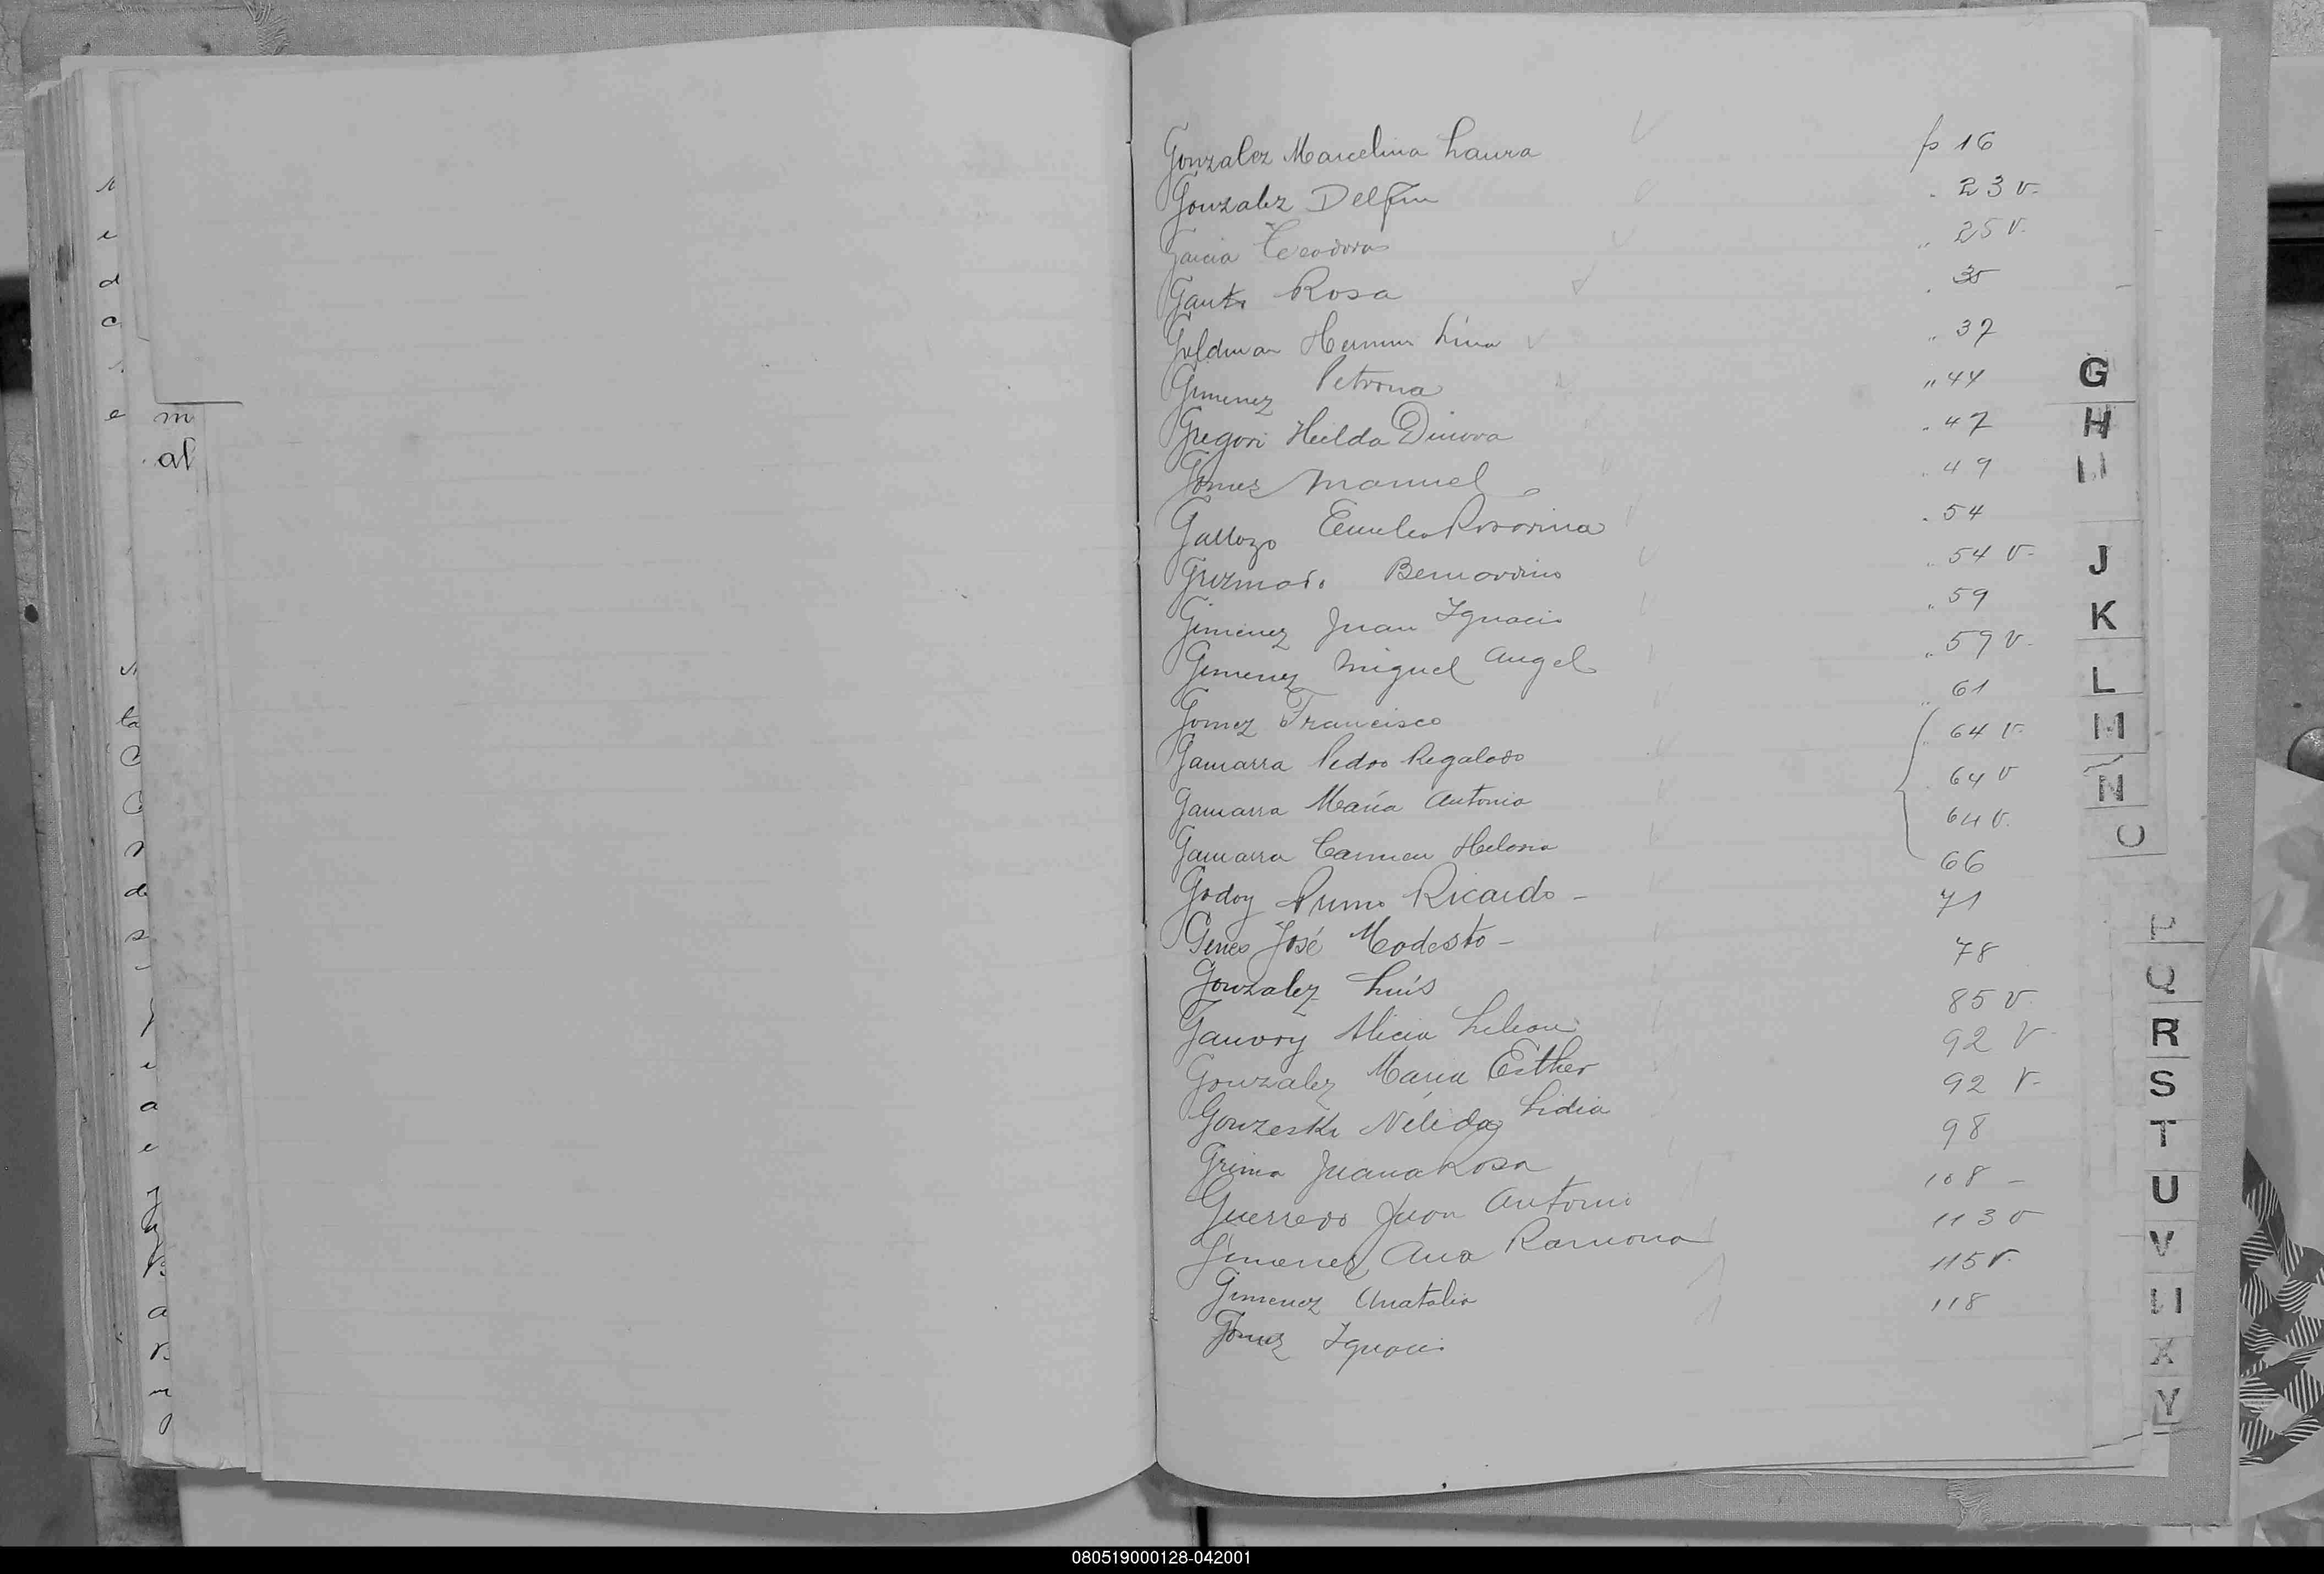 Gonzalez Marcelina Laura fs 16
Gonzalez Delfin " 23 v.
Garcia Teodora " 25 v.
Rosa 35
Geldman Herman Lina " 37
Gimenez Petrona " 44
Gregori Hilda Dinora " 47
Gomez Manuel " 49
Emilia " 54
Guzman Bernardino " 54 v.
Gimenez Juan Ignacio " 59
Gimenez Miguel Angel " 59 v.
Gomez Francisco " 61
Gamarra Pedro Regalado 64 v.
Gamarra María Antonia 64 v
Gamarra Carmen 64 v.
Godoy Primo Ricardo - 66
Genes José Modesto - 71
Gonzalez Luís 78
Alicia 85 v.
Gonzalez María Esther 92 v
Gonzeski Nélida Lidia 92 v.
Grima Juana Rosa 98
Guerrero Juan Antonio 108 -
Gimenez Ana Ramona 113 v
Gimenez Anatalia 115 v.
Gomez Ignacio 118
G
H
J
K
L
M
Ñ
O
P
Q
R
S
T
U
V
X
Y
m
al
080519000128-042001